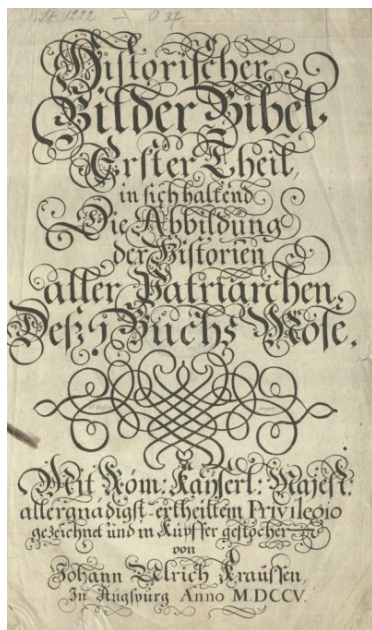 Historischer
Bilder Bibel.
Erster Theil,
in sich haltend
Die Abbildung
der Historien
aller Patriarchen,
Deß j Buchs Mose.
Mit Röm: Kayserl: Majest:
allergnädigst-ertheiltem Privilegio
gezeichnet und in Kupffer gestochen
von
Johann Ulrich Kraussen,
In Augspurg Anno M DCCV.